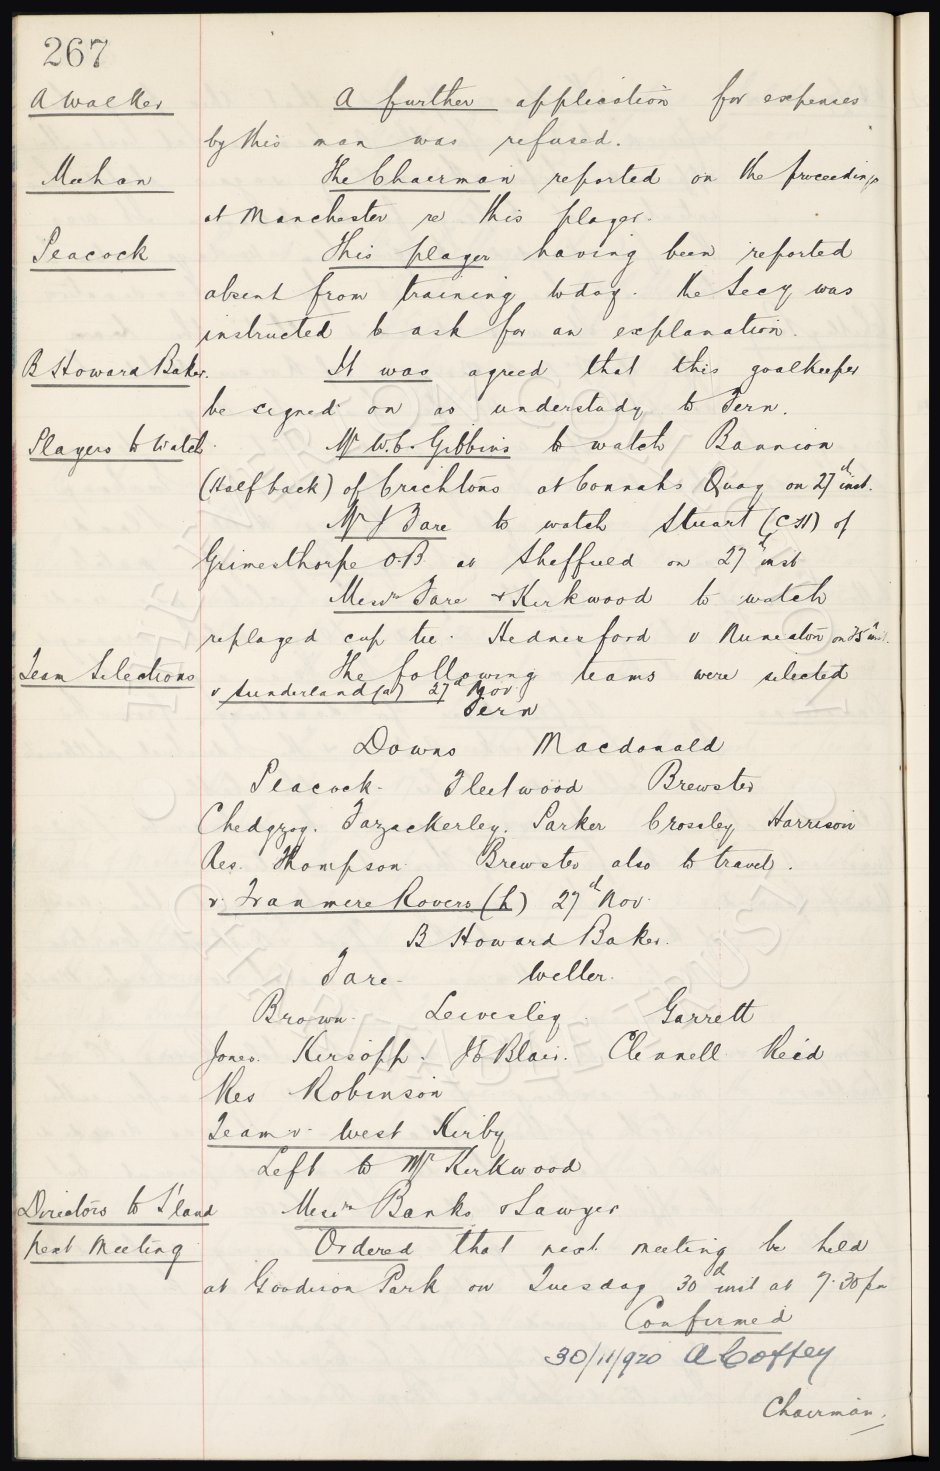 267
A Walker A further application for expenses
by this man was refused.
Meehan The Chairman reported on the proceedings
at Manchester re this player.
Peacock This player having been reported
absent from training today. the Secy was
instructed to ask for an explanation.
B Howard Baker. It was agreed that this goalkeeper
be signed on as understudy to Fern.
Players to Watch. Mr W.C. Gibbins to watch Bannion
(Half back) of Crichtons at Connahs Quay on 27th inst.
Mr J Fare to watch Stuart (CH) of
Grimesthorpe O.B. at Sheffield on 27th inst
Messrs Fare & Kirkwood to watch
replayed cup tie. Hednesford v Nuneaton on 25th inst.
Team Selections The following teams were selected
v Sunderland (a) 27th Nov
Fern
Downs Macdonald
Peacock. Fleetwood Brewster
Chedgzoy. Fazackerley. Parker Crossley Harrison
Res. Thompson Brewster also to travel.
v Tranmere Rovers (h) 27th Nov.
B Howard Baker.
Fare. Weller.
Brown. Leivesley. Garrett
Jones. Kirsopp. J Blair. Clennell Reid
Res Robinson
Team v. West Kirby
Left to Mr Kirkwood
Directors to S'land Messrs Banks & Sawyer
Next Meeting Ordered that next meeting be held
at Goodison Park on Tuesday 30th inst at 7.30 pm
Confirmed
30/11/920 A Coffey
Chairman.